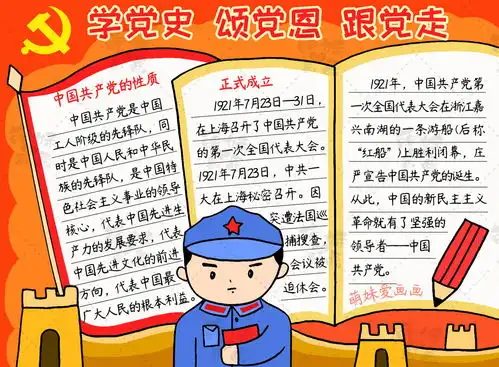 学党史 颂党恩 跟党走
中国共产党的性质
中国共产党是中国
工人阶级的先锋队，同
时是中国人民和中华民
族的先锋队，是中国特
色社会主义事业的领导
核心，代表中国先进生
产力的发展要求，代表
中国先进文化的前进
方向，代表中国最
广大人民的根本利益。
正式成立
1921年7月23日—31日，
在上海召开了中国共产党
的第一次全国代表大会。
1921年7月23日，中共一
大在上海秘密召开。因
突遭法国巡
捕搜查，
会议被
迫休会。
1921年，中国共产党第
一次全国代表大会在浙江嘉
兴南湖的一条游船(后称
“红船”)上胜利闭幕，庄
严宣告中国共产党的诞生。
从此，中国的新民主主义
革命就有了坚强的
领导者——中国
共产党。
萌妹爱画画